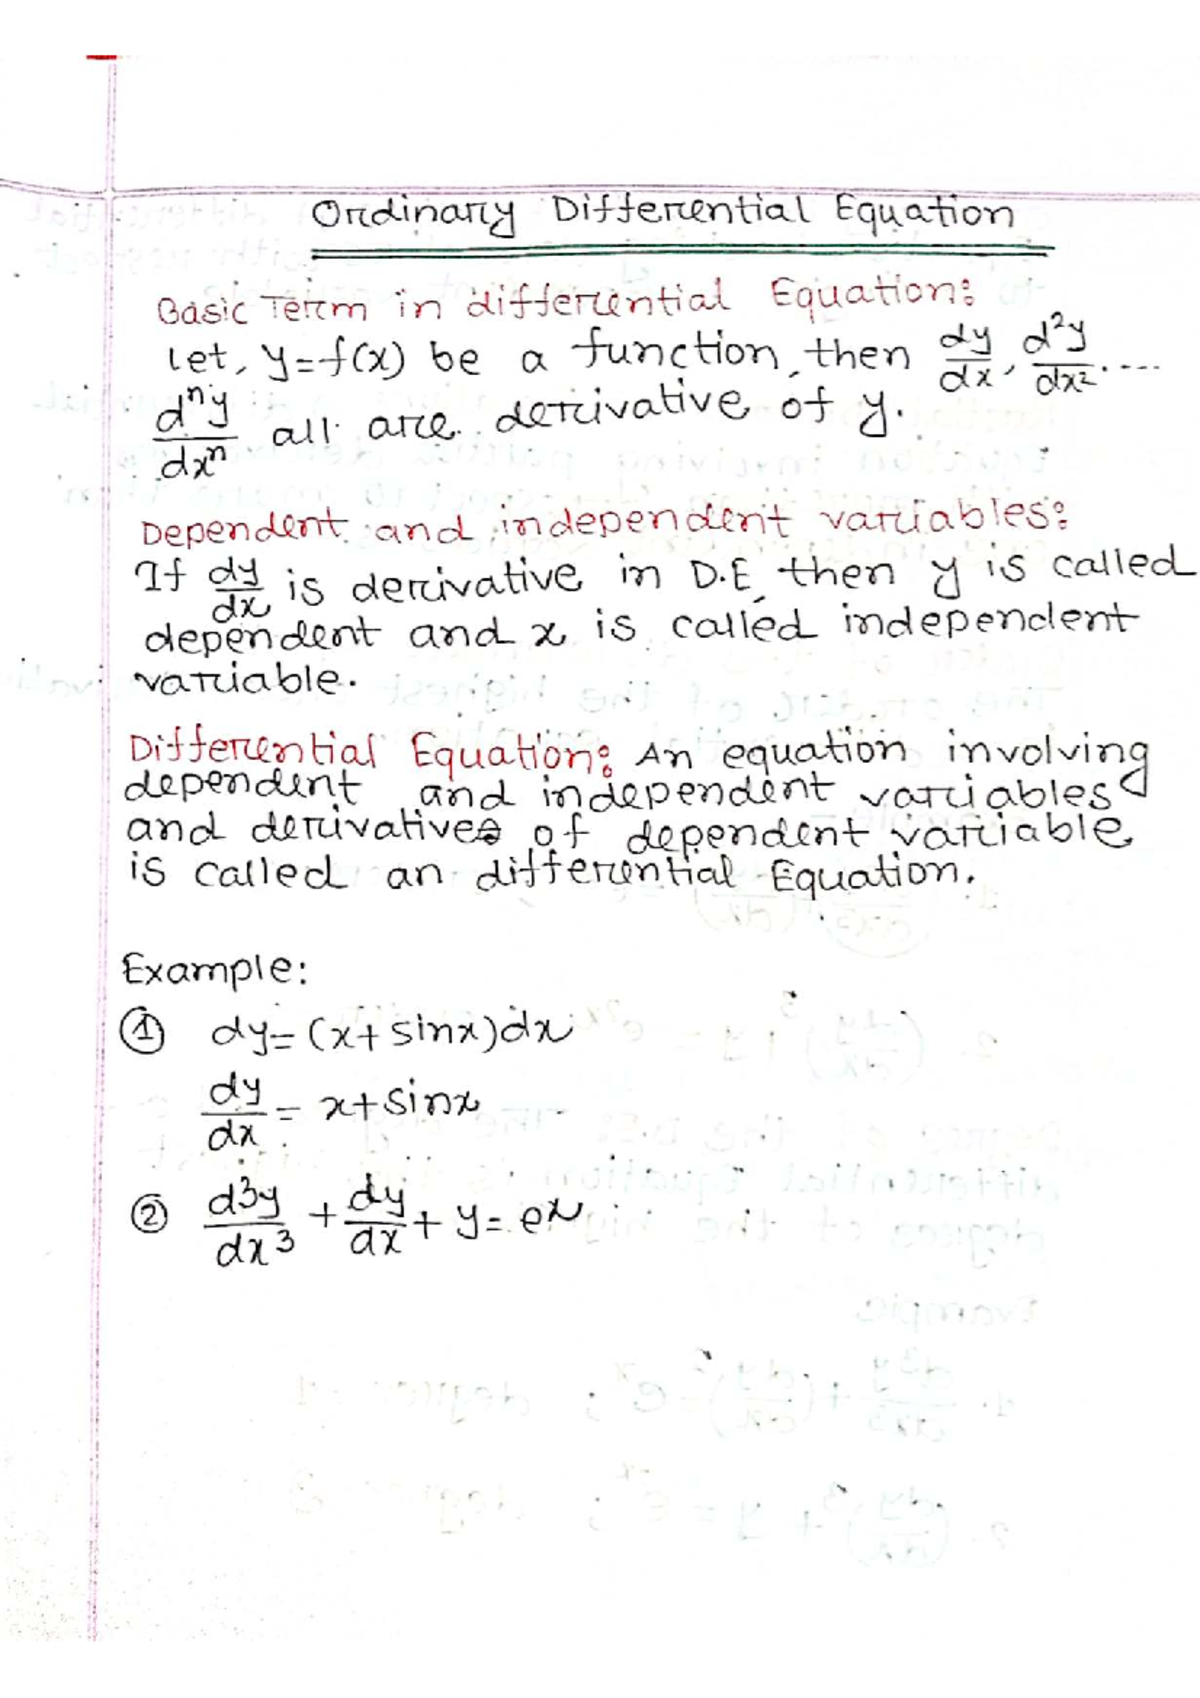 Ordinary Differential Equation
Basic Term in differential Equation:
Let, y=f(x) be a function, then dy/dx, d²y/dx² ....
dⁿy/dxⁿ all are derivative of y.
Dependent and independent variables:
If dy/dx is derivative in D.E, then y is called
dependent and x is called independent
variable.
Differential Equation: An equation involving
dependent and independent variables
and derivatives of dependent variable
is called an differential Equation.
Example:
① dy= (x+sinx)dx
dy/dx = x+sinx
② d³y/dx³ + dy/dx + y = eˣ